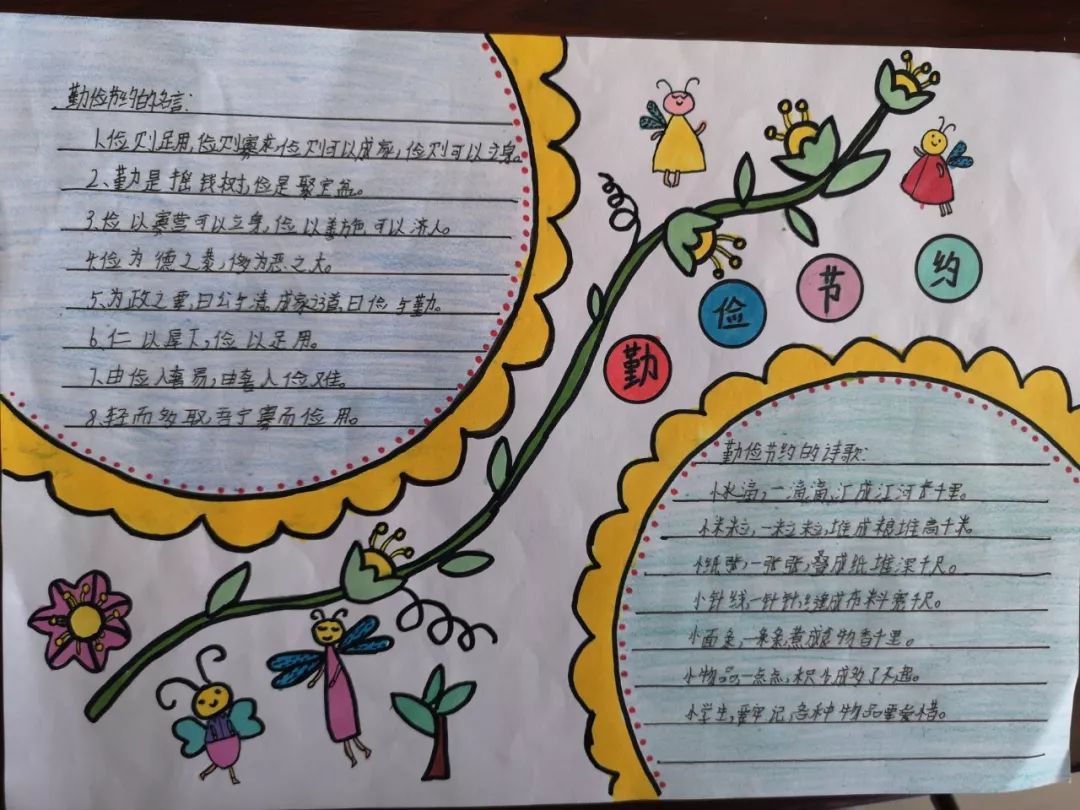 勤俭节约的名言:
1.俭则足用,俭则寡求,俭则可以成家,俭则可以立身。
2、勤是摇钱树,俭是聚宝盆。
3.俭以寡营可以立身,俭以善施可以济人。
4.俭为德之
5.为政之要,曰公与清,成家之道,曰俭与勤。
6.仁以厚下,俭以足用。
7.由俭入奢易,由奢入俭难。
8.轻而多取,吾宁寡而俭用。
勤俭节约
勤俭节约的诗歌:
小水滴,一滴滴,汇成江河千里。
小米粒,一粒粒,堆成粮堆高千米。
小纸张,一张张,叠成纸堆深千尺。
小针线,一针针,缝成布料宽千尺。
小面条,一条条,煮成食物香千里。
小物品,一点点,积少成多了不起。
小学生,要牢记,各种物品要爱惜。